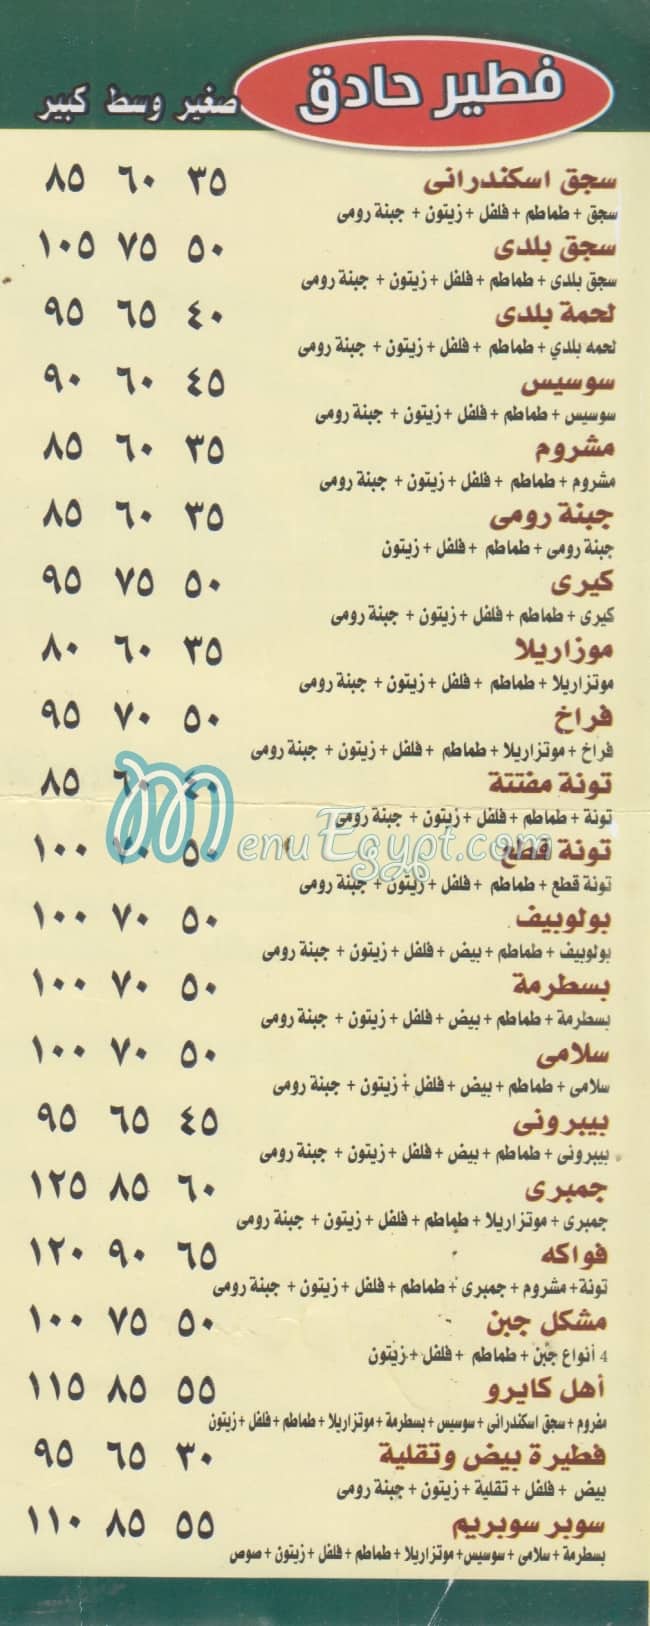 فطير حادق
صغير وسط كبير
سجق اسكندرانى ٣٥ ٦٠ ٨٥
سجق + طماطم + فلفل + زيتون + جبنة رومى
سجق بلدى ٥٠ ٧٥ ١٠٥
سجق بلدى + طماطم + فلفل + زيتون + جبنة رومى
لحمة بلدى ٤٠ ٦٥ ٩٥
لحمه بلدي + طماطم + فلفل + زيتون + جبنة رومى
سوسيس ٤٥ ٦٠ ٩٠
سوسيس + طماطم + فلفل + زيتون + جبنة رومى
مشروم ٣٥ ٦٠ ٨٥
مشروم + طماطم + فلفل + زيتون + جبنة رومى
جبنة رومى ٣٥ ٦٠ ٨٥
جبنة رومى + طماطم + فلفل + زيتون
كيرى ٥٠ ٧٥ ٩٥
كيرى + طماطم + فلفل + زيتون + جبنة رومى
موزاريلا ٣٥ ٦٠ ٨٠
موتزاريلا + طماطم + فلفل + زيتون + جبنة رومى
فراخ ٥٠ ٧٠ ٩٥
فراخ + موتزاريلا + طماطم + فلفل + زيتون + جبنة رومى
تونة مفتتة ٤٠ ٦٠ ٨٥
تونة + طماطم + فلفل + زيتون + جبنة رومى
تونة قطع ٥٠ ٧٠ ١٠٠
MenuEgypt.com
تونة قطع + طماطم + فلفل + زيتون + جبنة رومى
بولوبيف ٥٠ ٧٠ ١٠٠
بولوبيف + طماطم + بيض + فلفل + زيتون + جبنة رومى
بسطرمة ٥٠ ٧٠ ١٠٠
بسطرمة + طماطم + بيض + فلفل + زيتون + جبنة رومى
سلامى ٥٠ ٧٠ ١٠٠
سلامى + طماطم + بيض + فلفل + زيتون + جبنة رومى
بيبرونى ٤٥ ٦٥ ٩٥
بيبرونى + طماطم + بيض + فلفل + زيتون + جبنة رومى
جمبرى ٦٠ ٨٥ ١٢٥
جمبرى + موتزاريلا + طماطم + فلفل + زيتون + جبنة رومى
فواكه ٦٥ ٩٠ ١٢٠
تونة+ مشروم + جمبرى + طماطم + فلفل + زيتون + جبنة رومى
مشكل جبن ٥٠ ٧٥ ١٠٠
4 أنواع جبن + طماطم + فلفل + زيتون
أهل كايرو ٥٥ ٨٥ ١١٥
مفروم + سجق اسكندرانى + سوسيس + بسطرمة + موتزاريلا + طماطم + فلفل + زيتون
فطيرة بيض وتقلية ٣٠ ٦٥ ٩٥
بيض + فلفل + تقلية + زيتون + جبنة رومى
سوبر سوبريم ٥٥ ٨٥ ١١٠
بسطرمة + سلامى + سوسيس+ موتزاريلا + طماطم + فلفل + زيتون + صوص